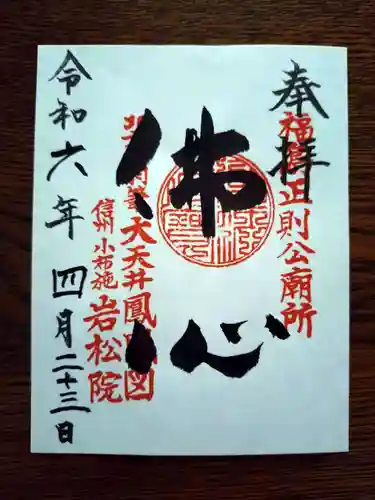 奉拝
福島正則公廟所
佛心
北斎筆大天井鳳凰図
信州小布施
岩松院
令和六年四月二十三日